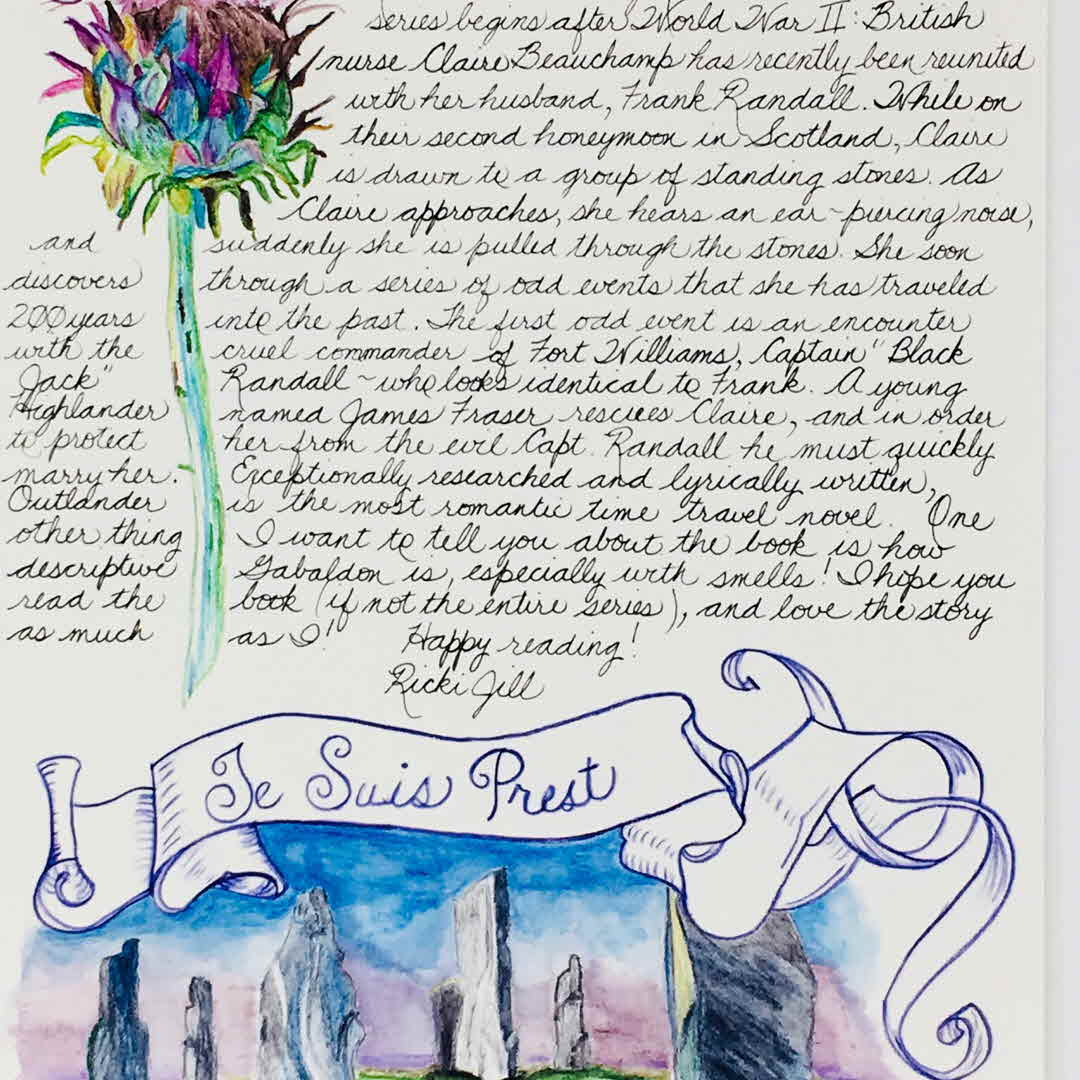 Series begins after World War II: British
nurse Claire Beauchamp has recently been reunited
with her husband, Frank Randall. While on
their second honeymoon in Scotland, Claire
is drawn to a group of standing stones. As
Claire approaches, she hears an ear-piercing noise,
and suddenly she is pulled through the stones. She soon
discovers through a series of odd events that she has traveled
200 years into the past. The first odd event is an encounter
with the cruel commander of Fort Williams, Captain "Black
Jack" Randall - who looks identical to Frank. A young
Highlander named James Fraser rescues Claire, and in order
to protect her from the evil Capt. Randall he must quickly
marry her. Exceptionally researched and lyrically written,
Outlander is the most romantic time travel novel. One
other thing I want to tell you about the book is how
descriptive Gabaldon is, especially with smells! I hope you
read the book (if not the entire series), and love the story
as much as I! Happy reading!
Ricki Jill
Je Suis Prest